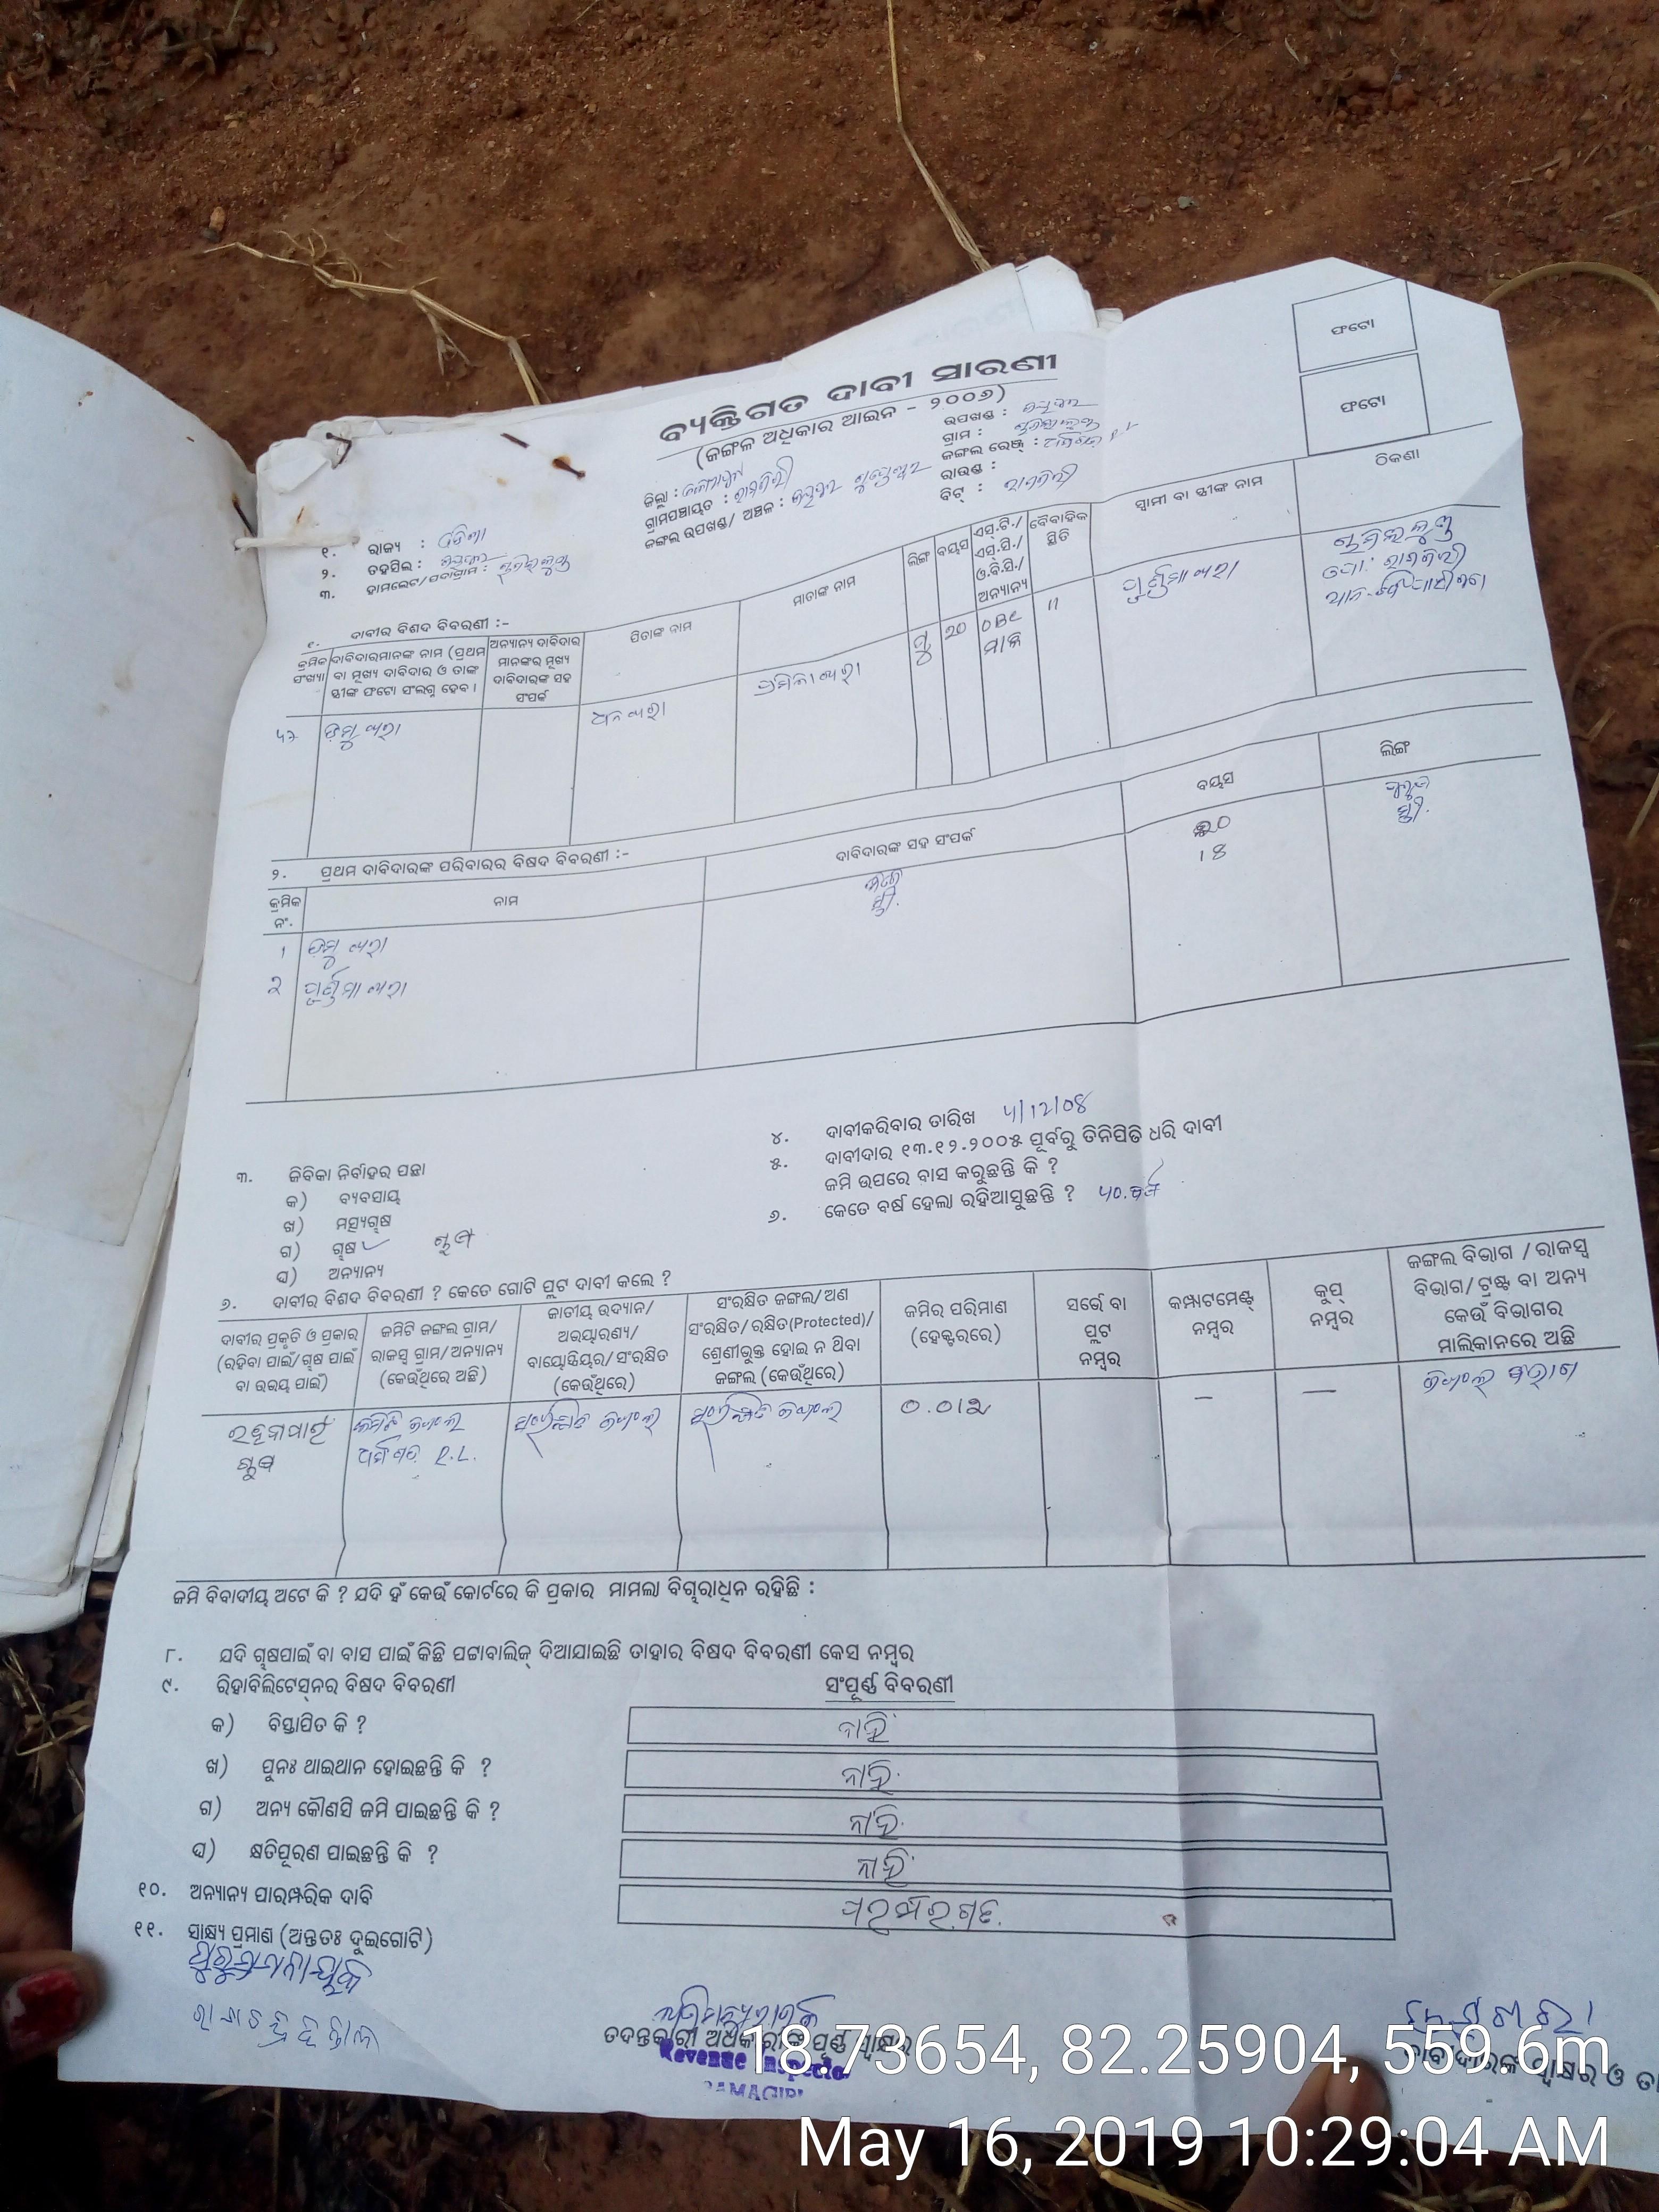 ଫଟୋ
ଫଟୋ
ବ୍ୟକ୍ତିଗତ ଦାବୀ ସାରଣୀ
(ଜଙ୍ଗଲ ଅଧିକାର ଆଇନ - ୨୦୦୬)
୧. ରାଜ୍ୟ : ଓଡିଶା
ଜିଲ୍ଲା :
ଉପଖଣ୍ଡ :
୨. ତହସିଲ :
ଗ୍ରାମପଞ୍ଚାୟତ : ରାମଗିରୀ
ଗ୍ରାମ :
୩. ହାମଲେଟ/ପଦାଗ୍ରାମ :
ଜଙ୍ଗଲ ଉପଖଣ୍ଡ/ ଅଞ୍ଚଳ :
ଜଙ୍ଗଲ ରେଞ୍ଜ୍ :
ରାଉଣ୍ଡ :
ବିଟ୍ : ରାମଗିରୀ
୧. ଦାବୀର ବିଶଦ ବିବରଣୀ :-
କ୍ରମିକ ସଂଖ୍ୟା
ଦାବିଦାରମାନଙ୍କ ନାମ (ପ୍ରଥମ ବା ମୂଖ୍ୟ ଦାବିଦାର ଓ ତାଙ୍କ ସ୍ତ୍ରୀଙ୍କ ଫଟୋ ସଂଲଗ୍ନ ହେବ ।
ଅନ୍ୟାନ୍ୟ ଦାବିଦାର ମାନଙ୍କର ମୂଖ୍ୟ ଦାବିଦାରଙ୍କ ସହ ସଂପର୍କ
ପିତାଙ୍କ ନାମ
ମାତାଙ୍କ ନାମ
ଲିଙ୍ଗ
ବୟସ
ଏସ୍.ଟି./ ଏସ୍.ସି./ ଓ.ବି.ସି./ ଅନ୍ୟାନ୍ୟ
ବୈବାହିକ ସ୍ଥିତି
ସ୍ୱାମୀ ବା ସ୍ତ୍ରୀଙ୍କ ନାମ
ଠିକଣା
ଡମ୍ବୁ ଖରା
ଧନ ଖରା
ପ୍ରମିଳା ଖରା
ପୁ
20
OBC
ମାଳି
11
ପୂର୍ଣ୍ଣମା ଖରା
ପୋ: ରାମଗିରୀ
୨. ପ୍ରଥମ ଦାବିଦାରଙ୍କ ପରିବାରର ବିଷଦ ବିବରଣୀ :-
କ୍ରମିକ ନଂ.
ନାମ
ଦାବିଦାରଙ୍କ ସହ ସଂପର୍କ
ବୟସ
ଲିଙ୍ଗ
1 ଡମ୍ବୁ ଖରା 20
2 ପୂର୍ଣ୍ଣମା ଖରା ସ୍ତ୍ରୀ. 18 ସ୍ତ୍ରୀ.
୩. ଜିବିକା ନିର୍ବାହର ପନ୍ଥା
କ) ବ୍ୟବସାୟ
ଖ) ମତ୍ସ୍ୟଚାଷ
ଗ) ଚାଷ ✓
ଘ) ଅନ୍ୟାନ୍ୟ
୪. ଦାବୀକରିବାର ତାରିଖ
୫. ଦାବୀଦାର ୧୩.୧୨.୨୦୦୫ ପୂର୍ବରୁ ତିନିପିଢି ଧରି ଦାବୀ
ଜମି ଉପରେ ବାସ କରୁଛନ୍ତି କି ?
୬. କେତେ ବର୍ଷ ହେଲା ରହିଆସୁଛନ୍ତି ?
୭. ଦାବୀର ବିଶଦ ବିବରଣୀ ? କେତେ ଗୋଟି ପ୍ଲଟ ଦାବୀ କଲେ ?
ଦାବୀର ପ୍ରକୃତି ଓ ପ୍ରକାର (ରହିବା ପାଇଁ/ଚାଷ ପାଇଁ ବା ଉଭୟ ପାଇଁ)
ଜମିଟି ଜଙ୍ଗଲ ଗ୍ରାମ/ ରାଜସ୍ୱ ଗ୍ରାମ/ଅନ୍ୟାନ୍ୟ (କେଉଁଥିରେ ଅଛି)
ଜାତୀୟ ଉଦ୍ୟାନ/ ଅଭୟାରଣ୍ୟ/ ବାୟୋସ୍ଫିୟର/ସଂରକ୍ଷିତ (କେଉଁଥିରେ)
ସଂରକ୍ଷିତ ଜଙ୍ଗଲ/ଅଣ ସଂରକ୍ଷିତ/ ରକ୍ଷିତ(Protected)/ ଶ୍ରେଣୀଭୁକ୍ତ ହୋଇ ନ ଥିବା ଜଙ୍ଗଲ (କେଉଁଥିରେ)
ଜମିର ପରିମାଣ (ହେକ୍ଟରରେ)
ସର୍ଭେ ବା ପ୍ଲଟ ନମ୍ବର
କମ୍ପାଟମେଣ୍ଟ୍ ନମ୍ବର
କୁପ୍ ନମ୍ବର
ଜଙ୍ଗଲ ବିଭାଗ / ରାଜସ୍ୱ ବିଭାଗ/ ଟ୍ରଷ୍ଟ ବା ଅନ୍ୟ କେଉଁ ବିଭାଗର ମାଲିକାନରେ ଅଛି
ସଂରକ୍ଷିତ ଜଙ୍ଗଲ
ସଂରକ୍ଷିତ ଜଙ୍ଗଲ
—
—
ଜଙ୍ଗଲ ବିଭାଗ
ଜମି ବିବାଦୀୟ ଅଟେ କି ? ଯଦି ହଁ କେଉଁ କୋର୍ଟରେ କି ପ୍ରକାର ମାମଲା ବିଚାରାଧିନ ରହିଛି :
୮. ଯଦି ଚାଷପାଇଁ ବା ବାସ ପାଇଁ କିଛି ପଟ୍ଟାବାଲିକ୍ ଦିଆଯାଇଛି ତାହାର ବିଷଦ ବିବରଣୀ କେସ ନମ୍ବର
୯. ରିହାବିଲିଟେସ୍‌ନର ବିଷଦ ବିବରଣୀ
ସଂପୂର୍ଣ୍ଣ ବିବରଣୀ
କ) ବିସ୍ତାପିତ କି ? ନାହିଁ
ଖ) ପୁନଃ ଥାଇଥାନ ହୋଇଛନ୍ତି କି ? ନାହିଁ
ଗ) ଅନ୍ୟ କୌଣସି ଜମି ପାଇଛନ୍ତି କି ? ନାହିଁ
ଘ) କ୍ଷତିପୂରଣ ପାଇଛନ୍ତି କି ? ନାହିଁ
୧୦. ଅନ୍ୟାନ୍ୟ ପାରମ୍ପରିକ ଦାବି ପରମ୍ପରାଗତ
୧୧. ସାକ୍ଷ୍ୟ ପ୍ରମାଣ (ଅନ୍ତତଃ ଦୁଇଗୋଟି)
ତଦନ୍ତକାରୀ ଅଧିକାରୀଙ୍କ ପୂର୍ଣ୍ଣ ସ୍ୱାକ୍ଷର
Revenue Inspector
RAMAGIRI
ଦାବୀଦାରଙ୍କ ସ୍ୱାକ୍ଷର ଓ
18.73654, 82.25904, 559.6m
May 16, 2019 10:29:04 AM